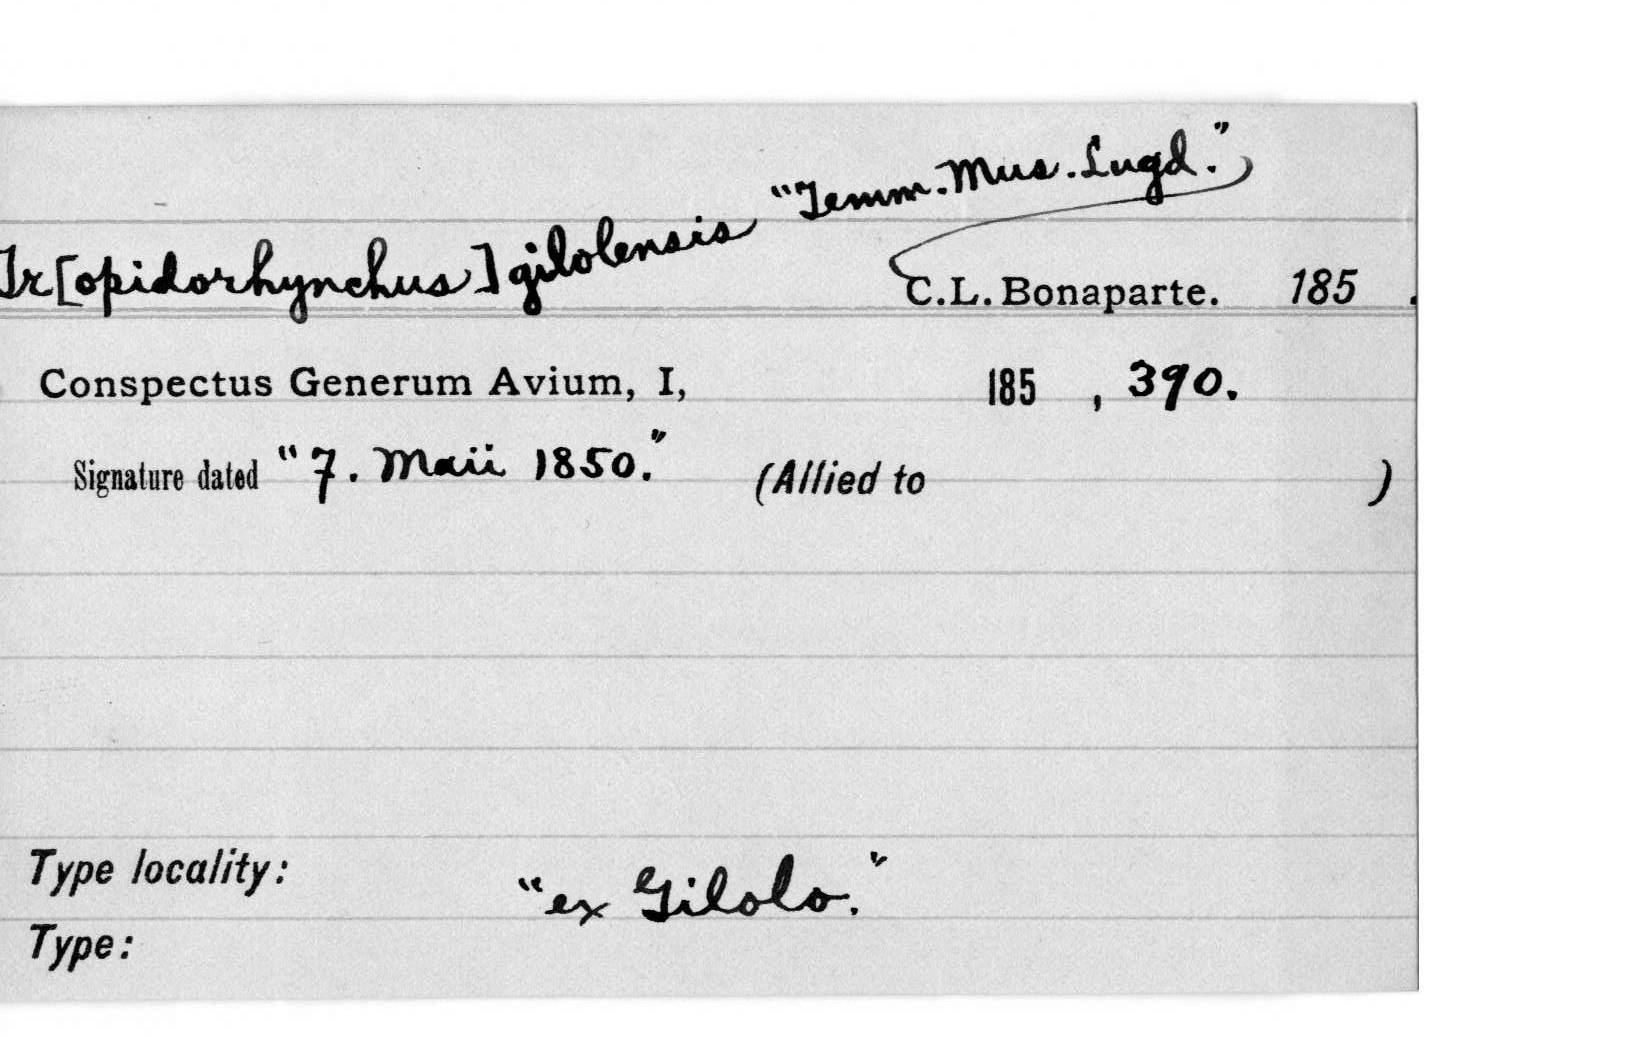 "Temm. Mus. Lugd."
Tr[opidorhynchus] gilolensis C.L. Bonaparte. 185 .
Conspectus Generum Avium, I, 185 , 390.
Signature dated "7. Maii 1850." (Allied to )
Type locality: "ex Gilolo."
Type: